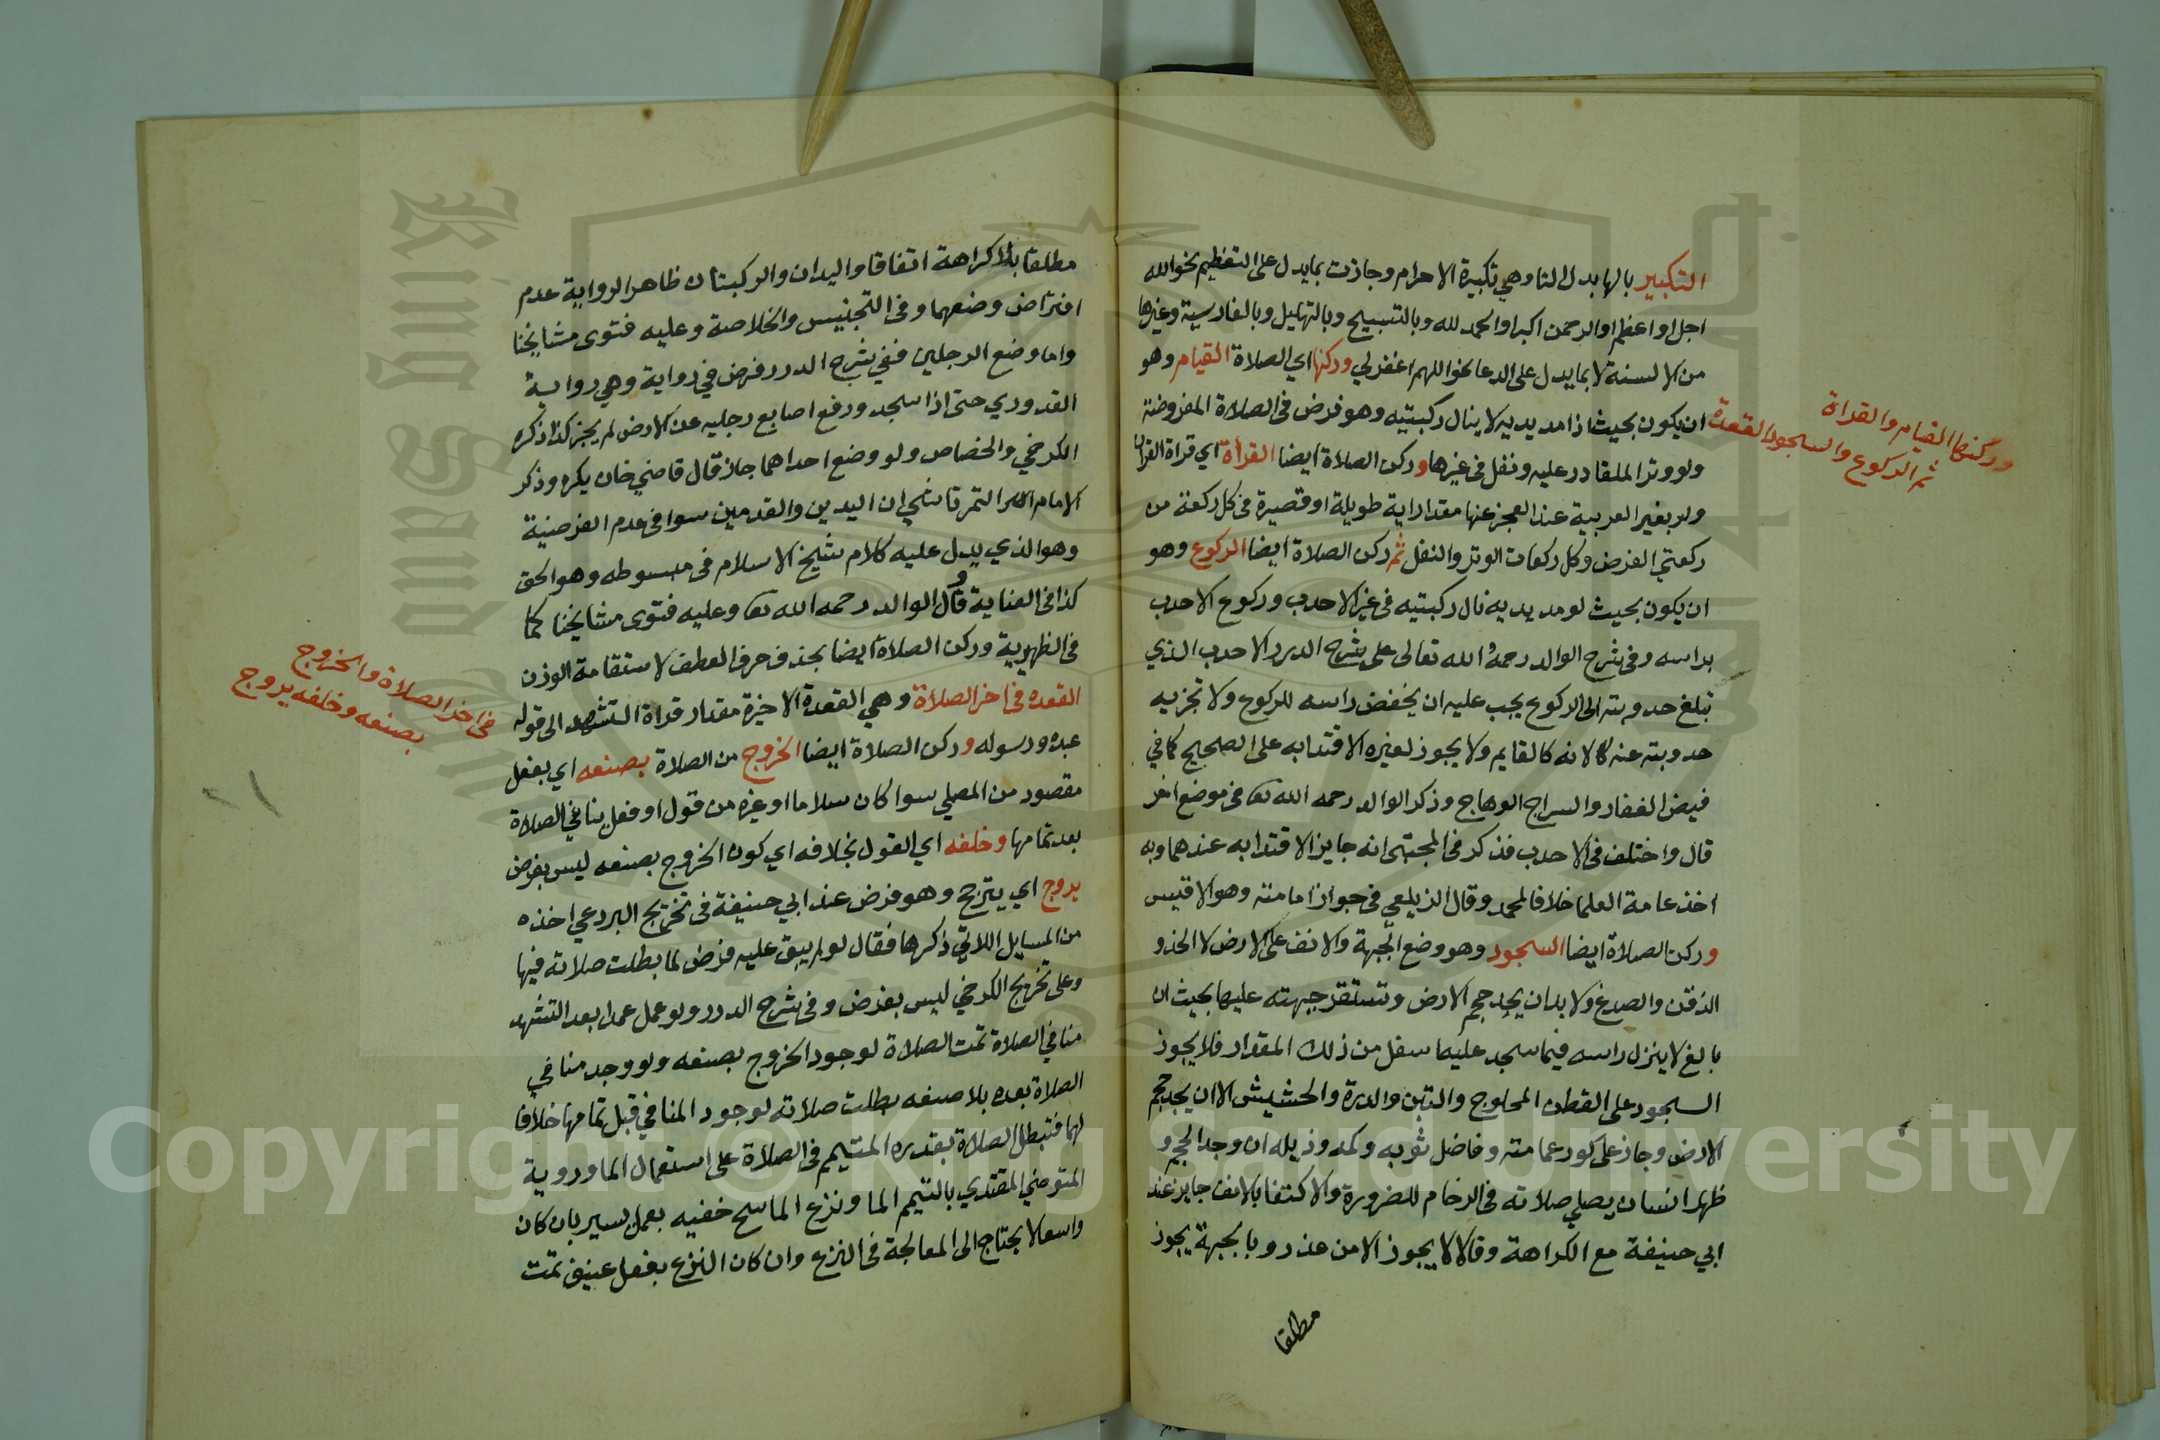 التكبير بالها بدل التا وهي تكبيرة الاحرام وجازت بما يدل على التعظيم نحو الله
اجل او اعظم او الرحمن اكبر او الحمد لله وبالتسبيح وبالتهليل وبالفارسية وغيرها
من الالسنة لا بما يدل على الدعا نحو اللهم اغفر لي وركنها اي الصلاة القيام وهو
ان يكون بحيث اذا مد يديه لا ينال ركبتيه وهو فرض في الصلاة المفروضة
ولو وترا للقادر عليه ونفل في غيرها وركن الصلاة ايضا القرأة اي قراة القران
ولو بغير العربية عند العجز عنها مقدار اية طويلة او قصيرة في كل ركعة من
ركعتي الفرض وكل ركعات الوتر والنفل ثم ركن الصلاة ايضا الركوع وهو
ان يكون بحيث لو مد يديه نال ركبتيه في غير الاحدب وركوع الاحدب
براسه وفي شرح الوالد رحمه الله تعالى على شرح الدرر الاحدب الذي
تبلغ حدوبته الى الركوع يجب عليه ان يخفض راسه للركوع ولا تجزيه
حدوبته عنه لانه كالقايم ولا يجوز لغيره الاقتدا به على الصحيح كما في
فيض الغفار والسراج الوهاج وذكر الوالد رحمه الله تعا في موضع اخر
قال واختلف في الاحدب فذكر في المجتبى انه جايز الاقتدا به عندهما وبه
اخذ عامة العلما خلافا لمحمد وقال الزيلعي في جواز امامته وهو الاقيس
وركن الصلاة ايضا السجود وهو وضع الجبهة والانف على الارض لا الخد و
الذقن والصدغ ولا بد ان يجد حجم الارض وتستقر جبهته عليها بحيث ان
بالغ لا ينزل راسه فيما سجد عليه اسفل من ذلك المقدار فلا يجوز
السجود على القطن المحلوج والتبن والدرة والحشيش الا ان يجد حجم
الارض وجاز على كور عمامته وفاضل ثوبه وكمه وذيله ان وجد الحجم و
ظهر انسان يصلي صلاته في الزحام للضرورة والاكتفا بالانف جايز عند
ابي حنيفة مع الكراهة وقالا لا يجوز الا من عذر وبالجبهة يجوز
مطلقا
وركنها القيام والقراة
ثم الركوع والسجود القعدة
مطلقا بلا كراهة اتفاقا واليدان والركبتان ظاهر الرواية عدم
افتراض وضعهما وفي التجنيس والخلاصة وعليه فتوى مشايخنا
واما وضع الرجلين ففي شرح الدرر فرض في رواية وهي رواية
القدوري حتى اذا سجد ورفع اصابع رجليه عن الارض لم يجز كذا ذكره
الكرخي والخصاص ولو وضع احداهما جاز قال قاضي خان يكره وذكر
الامام التمرتاشي ان اليدين والقدمين سوا في عدم الفرضية
وهو الذي يدل عليه كلام شيخ الاسلام في مبسوطه وهو الحق
كذا في العناية وقال الوالد رحمه الله تعا وعليه فتوى مشايخنا كما
في الظهيرية وركن الصلاة ايضا بحذف حرف العطف لاستقامة الوزن
القعده في اخر الصلاة وهي القعدة الاخيرة مقدار قراة التشهد الى قوله
عبده ورسوله وركن الصلاة ايضا الخروج من الصلاة بصنعه اي بفعل
مقصود من المصلي سوا كان سلاما او غيره من قول او فعل ينافي الصلاة
بعد تمامها وخلفه اي القول بخلافه اي كون الخروج بصنعه ليس بفرض
يروج اي يترجح وهو فرض عند ابي حنيفة في تخريج البردعي اخذه
من المسايل اللاتي ذكرها فقال لو لم يبق عليه فرض لما بطلت صلاته فيها
وعلى تخريج الكرخي ليس بفرض وفي شرح الدرر ولو عمل عمدا بعد التشهد
منافي الصلاة تمت الصلاة لوجود الخروج بصنعه ولو وجد منافي
الصلاة بعده بلا صنعه بطلت صلاته لوجود المنافي قبل تمامها خلافا
لهما فتبطل الصلاة بقدره المتيمم في الصلاة على استعمال الما وروية
المتوضي المقتدي بالمتيمم الما ونزع الماسح خفيه بعمل يسير بان كان
واسعا لا يحتاج الى المعالجة في النزع وان كان النزع بفعل عنيف تمت
في اخر الصلاة والخروج
بصنعه وخلفه يروج
Copyright © King Saud University
King Saud University